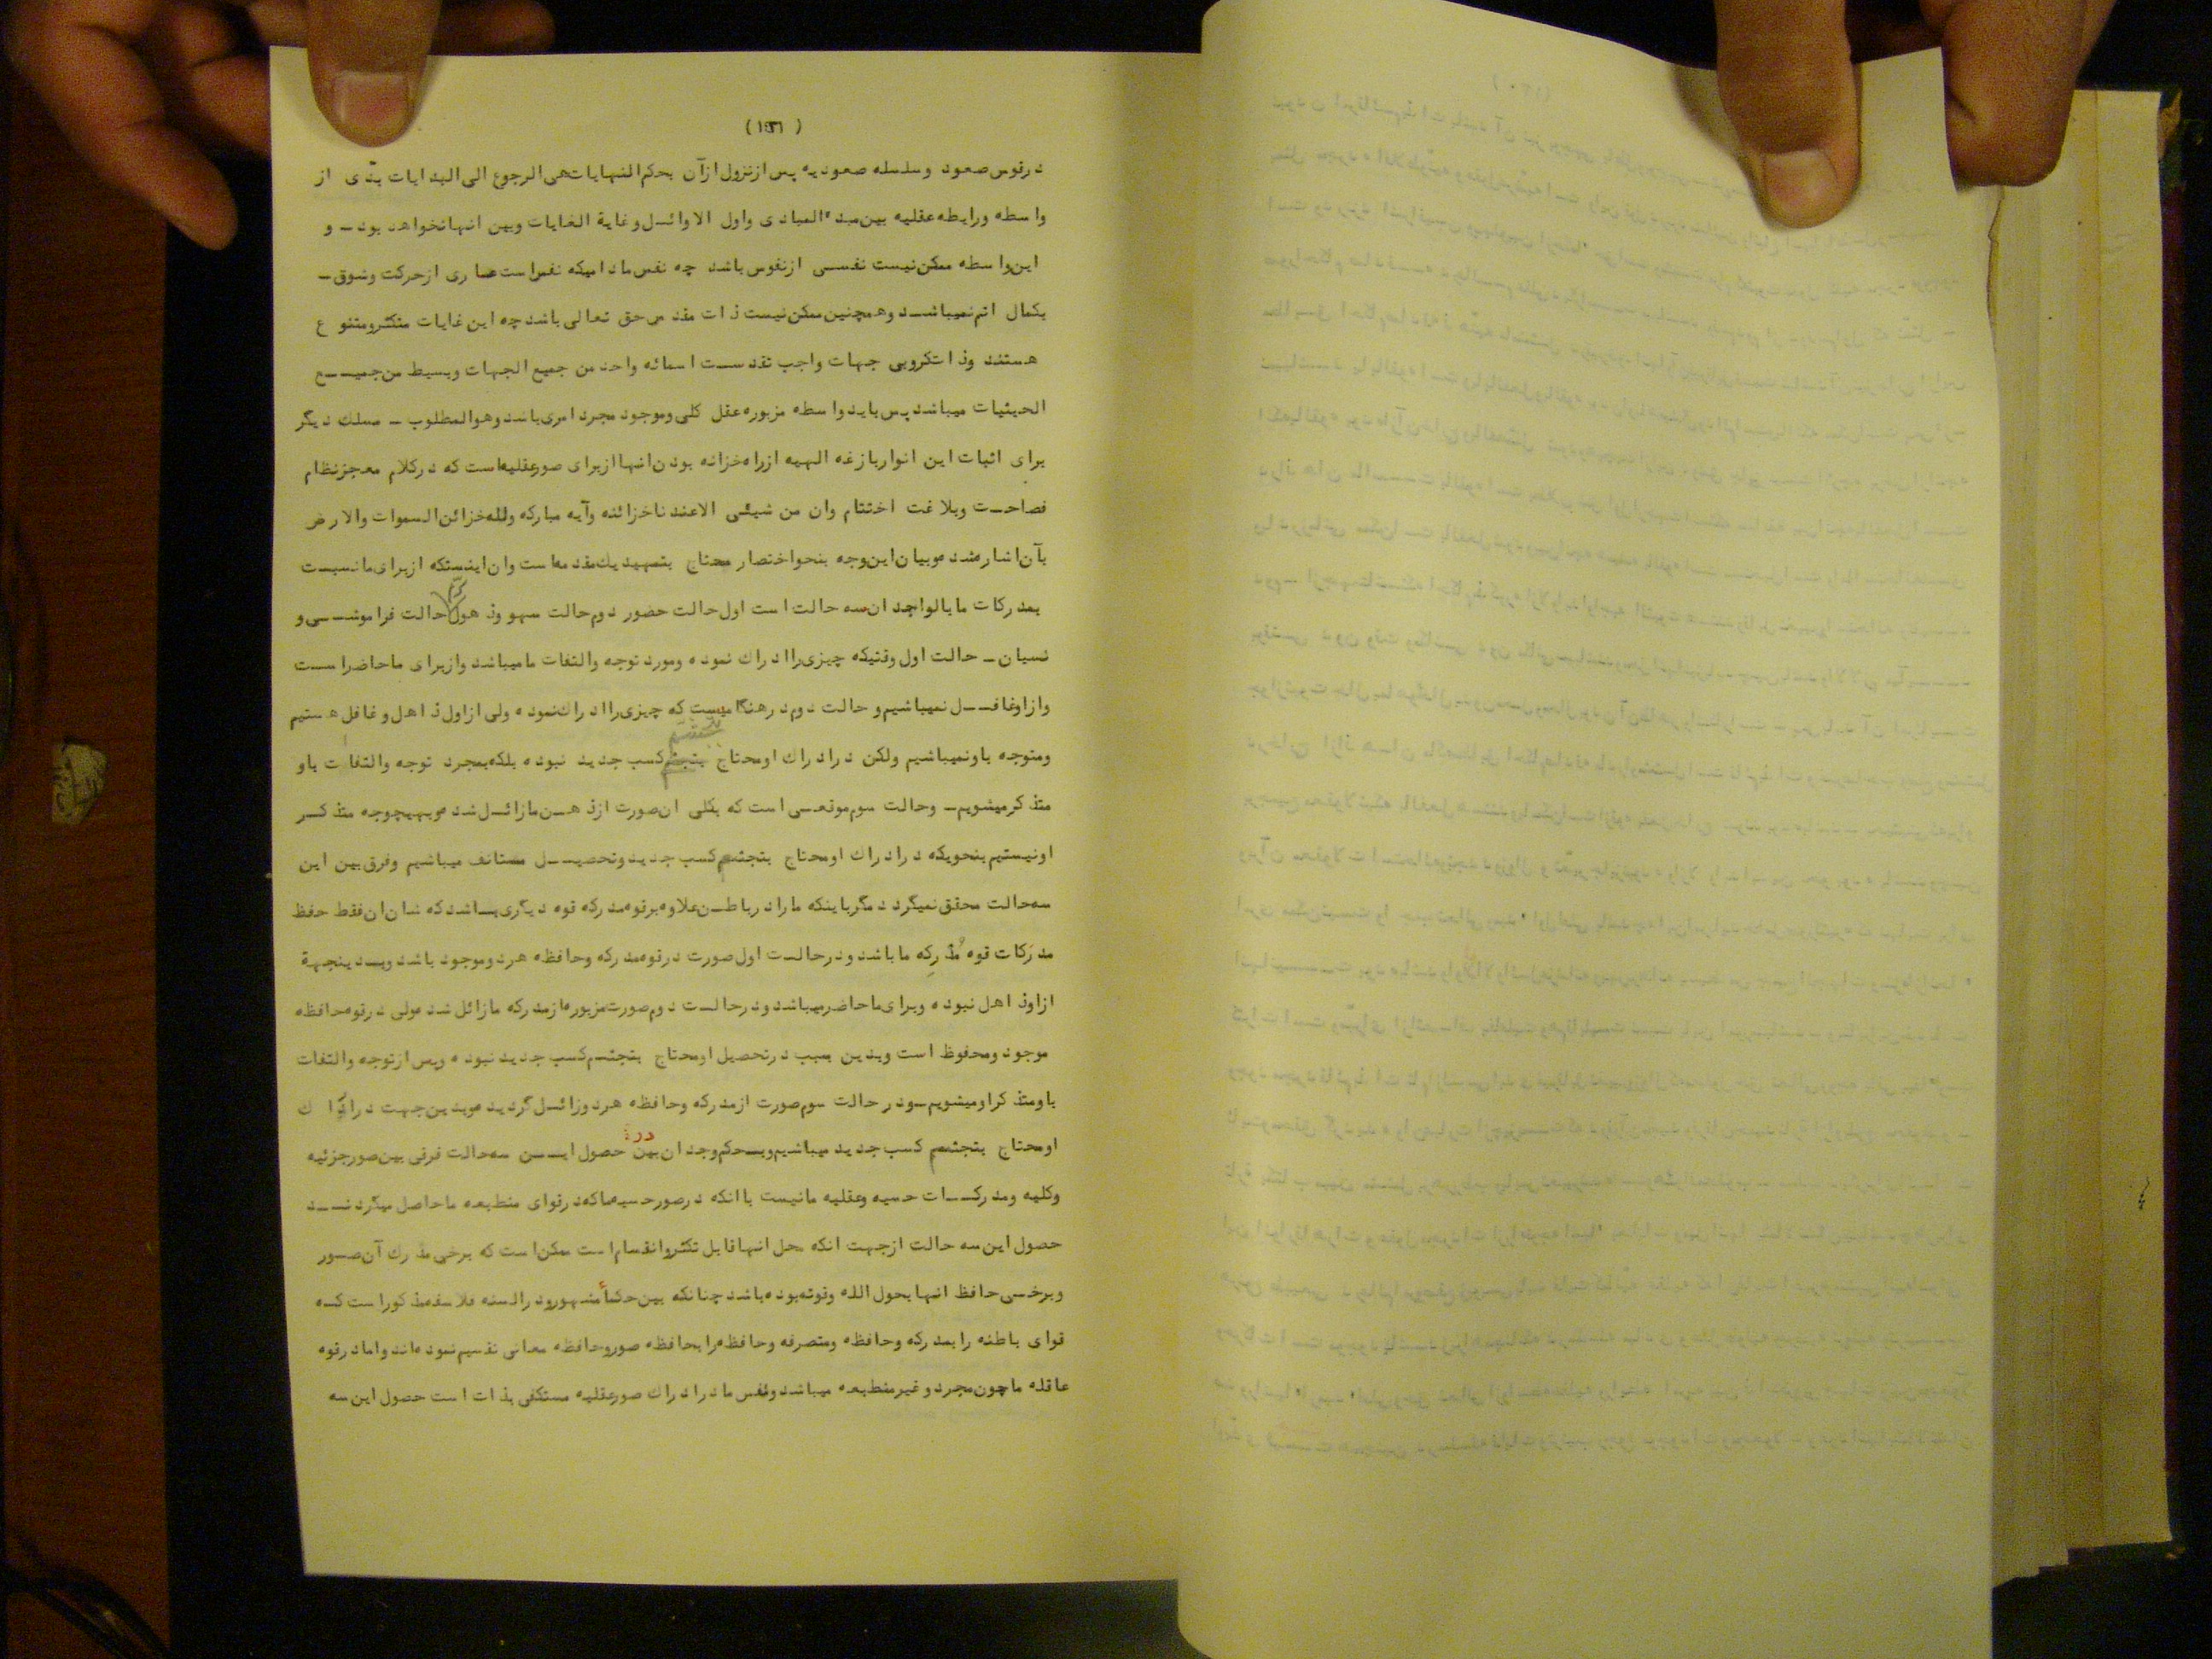 در قوس صعود وسلسله صعودیه پس ازنزول ازآن بحکم النهایات هی الرجوع الی البدایات بدّی از
واسطه ورابطه عقلیه بین مبدء المبادی واول الاوائـل وغایة الغایات وبین انهانخواهد بود ـ و
این واسطه ممکن نیست نفسی ازنفوس باشد چه نفس مادامیکه نفس است عاری ازحرکت وشوق ـ
بکمال اتم نمیباشـد وهمچنین ممکن نیست ذات مقدس حق تعالی باشد چه این غایات متکثرومتنوع
هستند وذات کروبی جهات واجب تقدسـت اسمائه واحد من جمیع الجهات وبسیط من جمیـع
الحیثیات میباشد پس باید واسطه مزبوره عقل کلی وموجود مجرد امری باشد وهوالمطلوب ـ مسلک دیگر
برای اثبات این انواربازغه الهیه ازراه خزانه بودن انها ازبرای صورعقلیه است که درکلام معجزنظام
فصاحـت وبلاغت اختتام وان من شیئـی الاعندناخزائنه وآیه مبارکه ولله خزائن السموات والارض
بآن اشاره شده وبیان این وجه بنحواختصار محتاج بتمهید یک مقدمه است وان اینستکه ازبرای مانسبت
بمدرکات مابالواجد ان سه حالت است اول حالت حضور دوم حالت سهو وذهول حالت فراموشـی و
نسیان ـ حالت اول وقتیکه چیزی را ادراک نموده ومورد توجه والتفات مامیباشد وازبرای ماحاضراسـت
وازاوغافـل نمیباشیم و حالت دوم در هنگامیست که چیزی را ادراک نموده ولی ازاول ذاهل وغافل هستیم
ومتوجه باونمیباشیم ولکن درادراک اومحتاج بتجشم کسب جدید نبوده بلکه بمجرد توجه والتفات باو
متذکرمیشویم ـ وحالت سوم موقعـی است که بکلی ان صورت ازذهـن مازائـل شده وبهیچوجه متذکـر
اونیستیم بنحویکه درادراک اومحتاج بتجشم کسب جدید وتحصیـل مستانف میباشیم وفرق بین این
سه حالت محقق نمیگردد مگرباینکه مارا درباطـن علاوه برقوه مدرکه قوه دیگری بـاشد که شان ان فقط حفظ
مدرکات قوه مدرکه ماباشد ودرحالـت اول صورت درقوه مدرکه وحافظه هردوموجود باشد وبـدینجهة
ازاوذاهل نبوده وبرای ماحاضرمیباشد ودرحالـت دوم صورت مزبوره ازمدرکه مازائل شده ولی درقوه حافظه
موجود ومحفوظ است وبدین سبب درتحصیل اومحتاج بتجشم کسب جدید نبوده وپس ازتوجه والتفات
باومتذکراومیشویم ـ ودر حالت سوم صورت ازمدرکه وحافظه هردوزائـل گردیده وبدین جهت درادراک
اومحتاج بتجشم کسب جدید میباشیم وبـحکم وجدان بین در حصول ایـن سه حالت فرقی بین صورجزئیه
وکلیه ومدرکـات حسیه وعقلیه مانیست باانکه درصورحسیه ماکه درقوای منطبعه ماحاصل میگردنـد
حصول این سه حالت ازجهت انکه محل انهاقابل تکثروانقسام است ممکن است که برخی مدرک آن صور
وبرخـی حافظ انها بحول الله وقوته بوده باشد چنانکه بین حکمأ مشهورودرالسنه فلاسفه مذکوراست کـه
قوای باطنه رابمدرکه وحافظه ومتصرفه وحافظه رابحافظه صوروحافظه معانی تقسیم نموده اند واما درقوه
عاقله ماچون مجرد وغیرمنطبعه میباشد ونفس مادرادراک صورعقلیه مستکفی بذات است حصول این سه